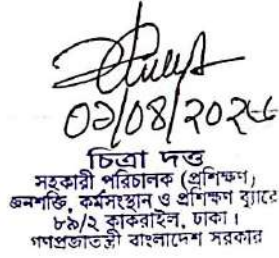 ০১/০৪/২০২৬
চিত্রা দত্ত
সহকারী পরিচালক (প্রশিক্ষণ)
জনশক্তি, কর্মসংস্থান ও প্রশিক্ষণ ব্যুরো
৮৯/২ কাকরাইল, ঢাকা।
গণপ্রজাতন্ত্রী বাংলাদেশ সরকার